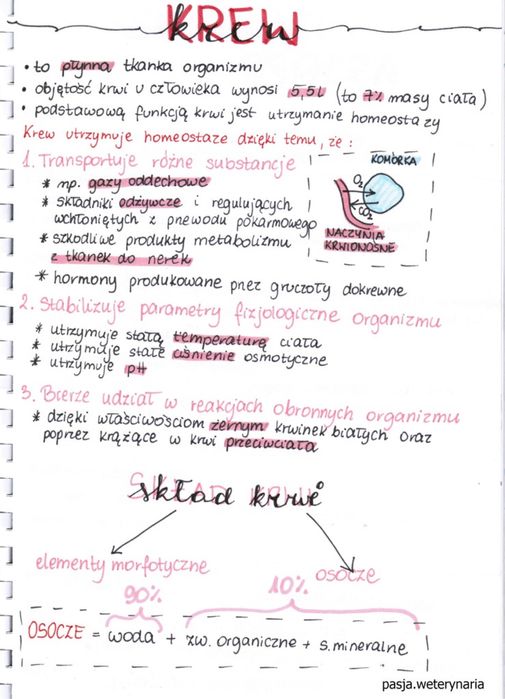 KREW
krew
• to płynna tkanka organizmu
• objętość krwi u człowieka wynosi 5,5l (to 7% masy ciała)
• podstawową funkcją krwi jest utrzymanie homeostazy
Krew utrzymuje homeostazę dzięki temu, że:
1. Transportuje różne substancje
* np. gazy oddechowe
* składniki odżywcze i regulujących
wchłoniętych z przewodu pokarmowego
* szkodliwe produkty metabolizmu
z tkanek do nerek
* hormony produkowane przez gruczoły dokrewne
KOMÓRKA
O2
CO2
NACZYNIA
KRWIONOŚNE
2. Stabilizuje parametry fizjologiczne organizmu
* utrzymuje stałą temperaturę ciała
* utrzymuje stałe ciśnienie osmotyczne
* utrzymuje pH
3. Bierze udział w reakcjach obronnych organizmu
* dzięki właściwościom żernym krwinek białych oraz
poprzez krążące w krwi przeciwciała
SKŁAD KRWI
skład krwi
elementy morfotyczne
osocze
90%
10%
OSOCZE = woda + zw. organiczne + s. mineralne
pasja.weterynaria